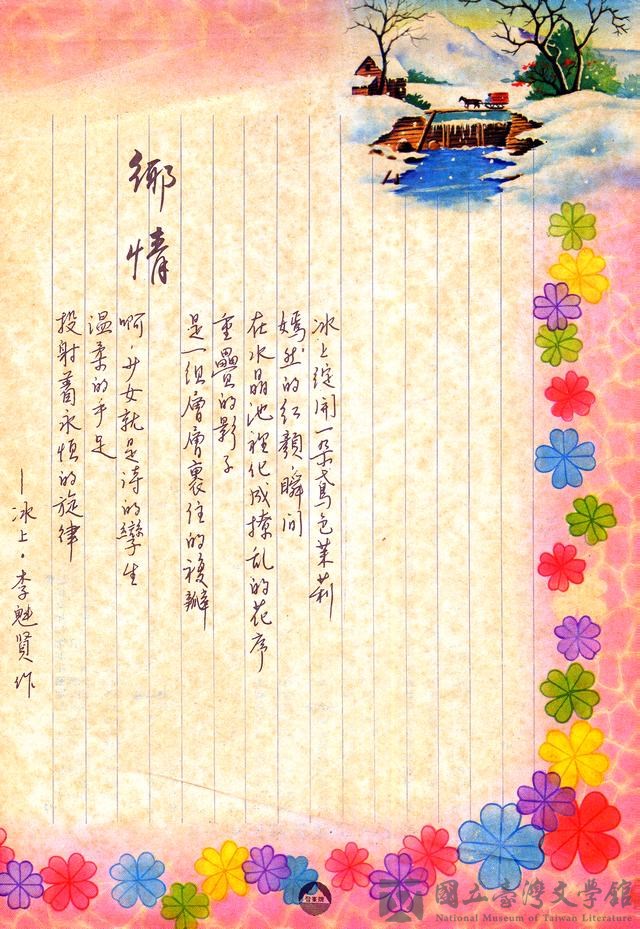 鄉情
冰上綻開一朵鳶色茉莉
嫣然的紅顏,瞬間
在水晶池裡化成撩乱的花序
重疊的影子
是一組層層裹住的複瓣
啊,少女就是詩的孿生
温柔的手足
投射著永恒的旋律
—冰上·李魁賢作
國立臺灣文學館
National Museum of Taiwan Literature